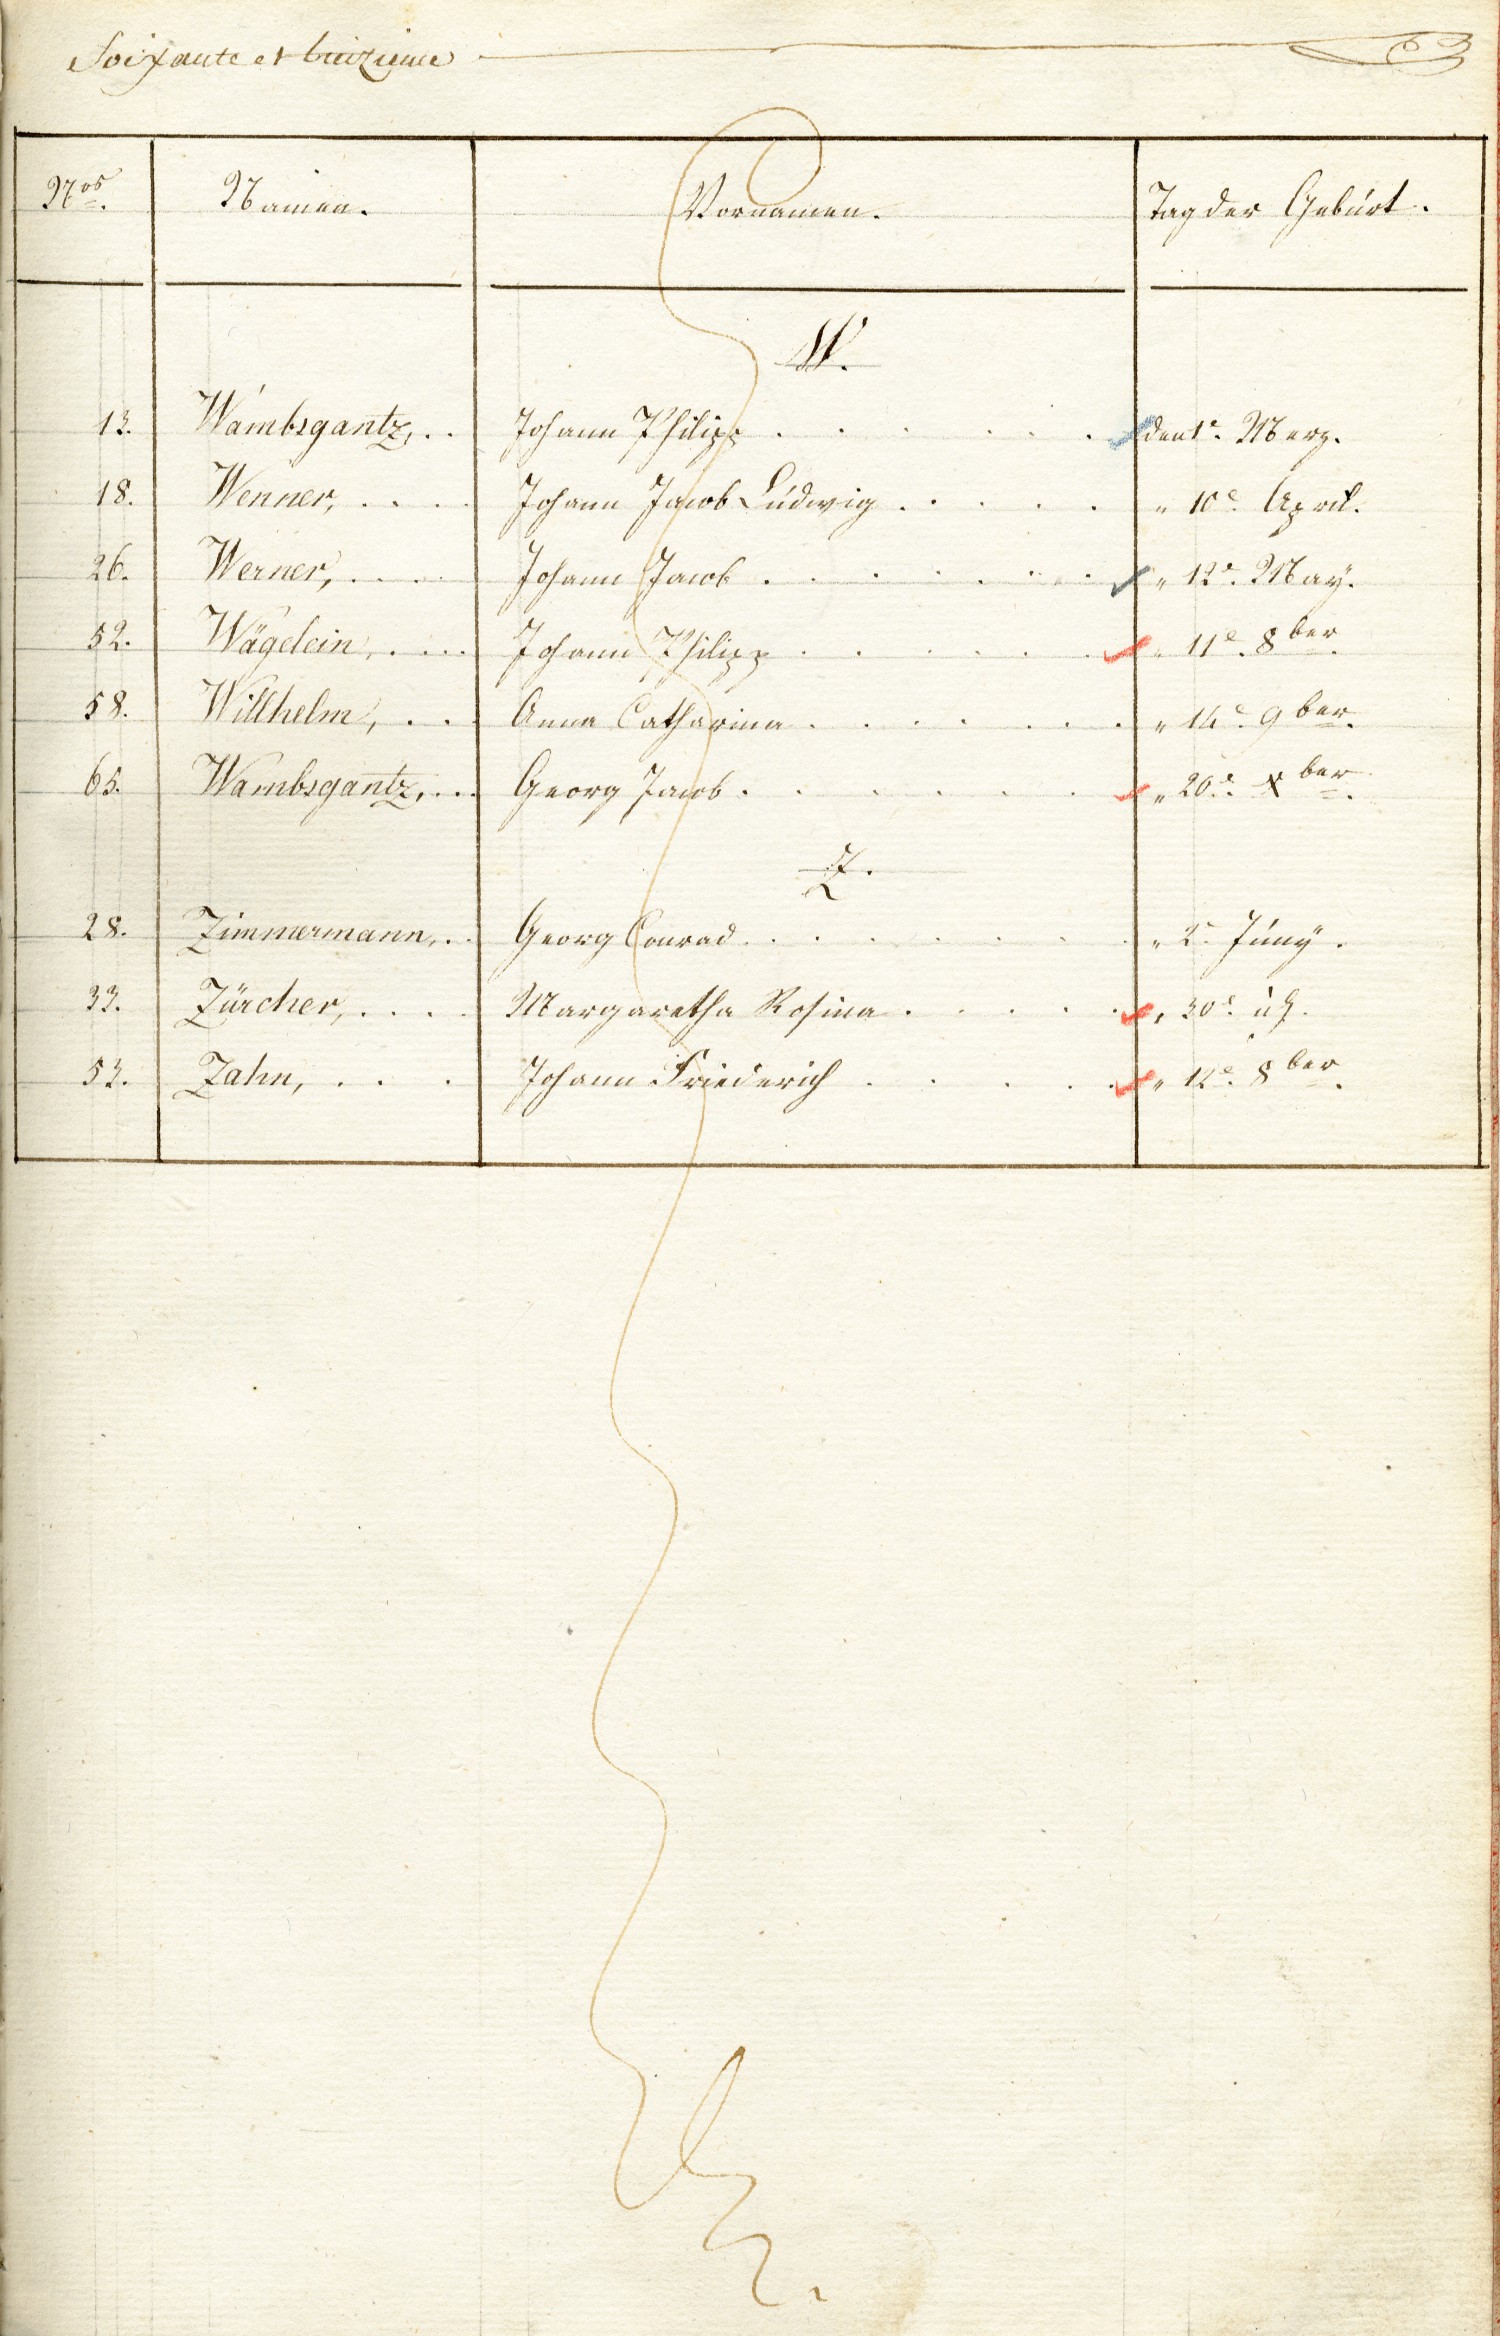 Soixante et treizieme 63
Nos. Namen. Vornamen. Tag der Geburt.
W.
13. Wambsgantz, . . Johann Philipp . . . . . . den 1e. Merz.
18. Wenner, . . . . Johann Jacob Ludwig . . . . . " 10e. April.
26. Werner, . . . . Johann Jacob . . . . . . . " 12e. May.
52. Wägelein, . . . . Johann Philipp . . . . . . " 11e. 8ber.
58. Willhelm, . . . Anna Catharina . . . . . . . " 14e. 9ber.
65. Wambsgantz, . . . Georg Jacob . . . . . . . " 20e. Xber.
Z.
28. Zimmermann, . . Georg Conrad . . . . . . . . " 2e. Juny.
33. Zürcher, . . . . Margaretha Rosina . . . . . " 30e.
53. Zahn, . . . Johann Friederich . . . . . " 12e. 8ber.